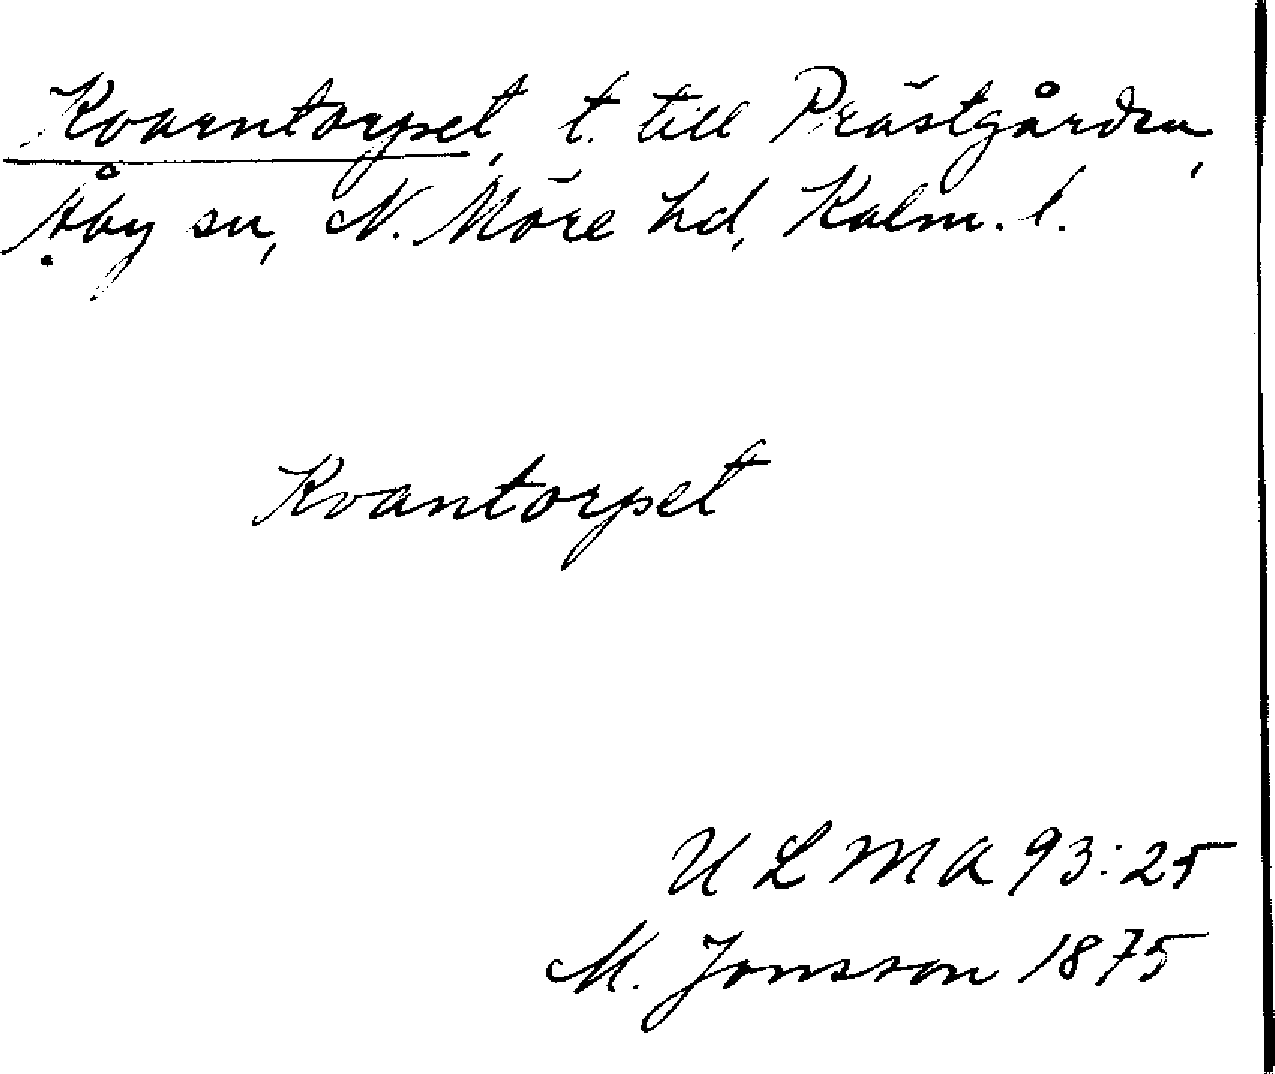 Kvarntorpet, t. till Prästgården,
Åby sn, N. Möre hd, Kalm. l.
Kvantorpet
ULMA 93:25
M. Jonsson 1875